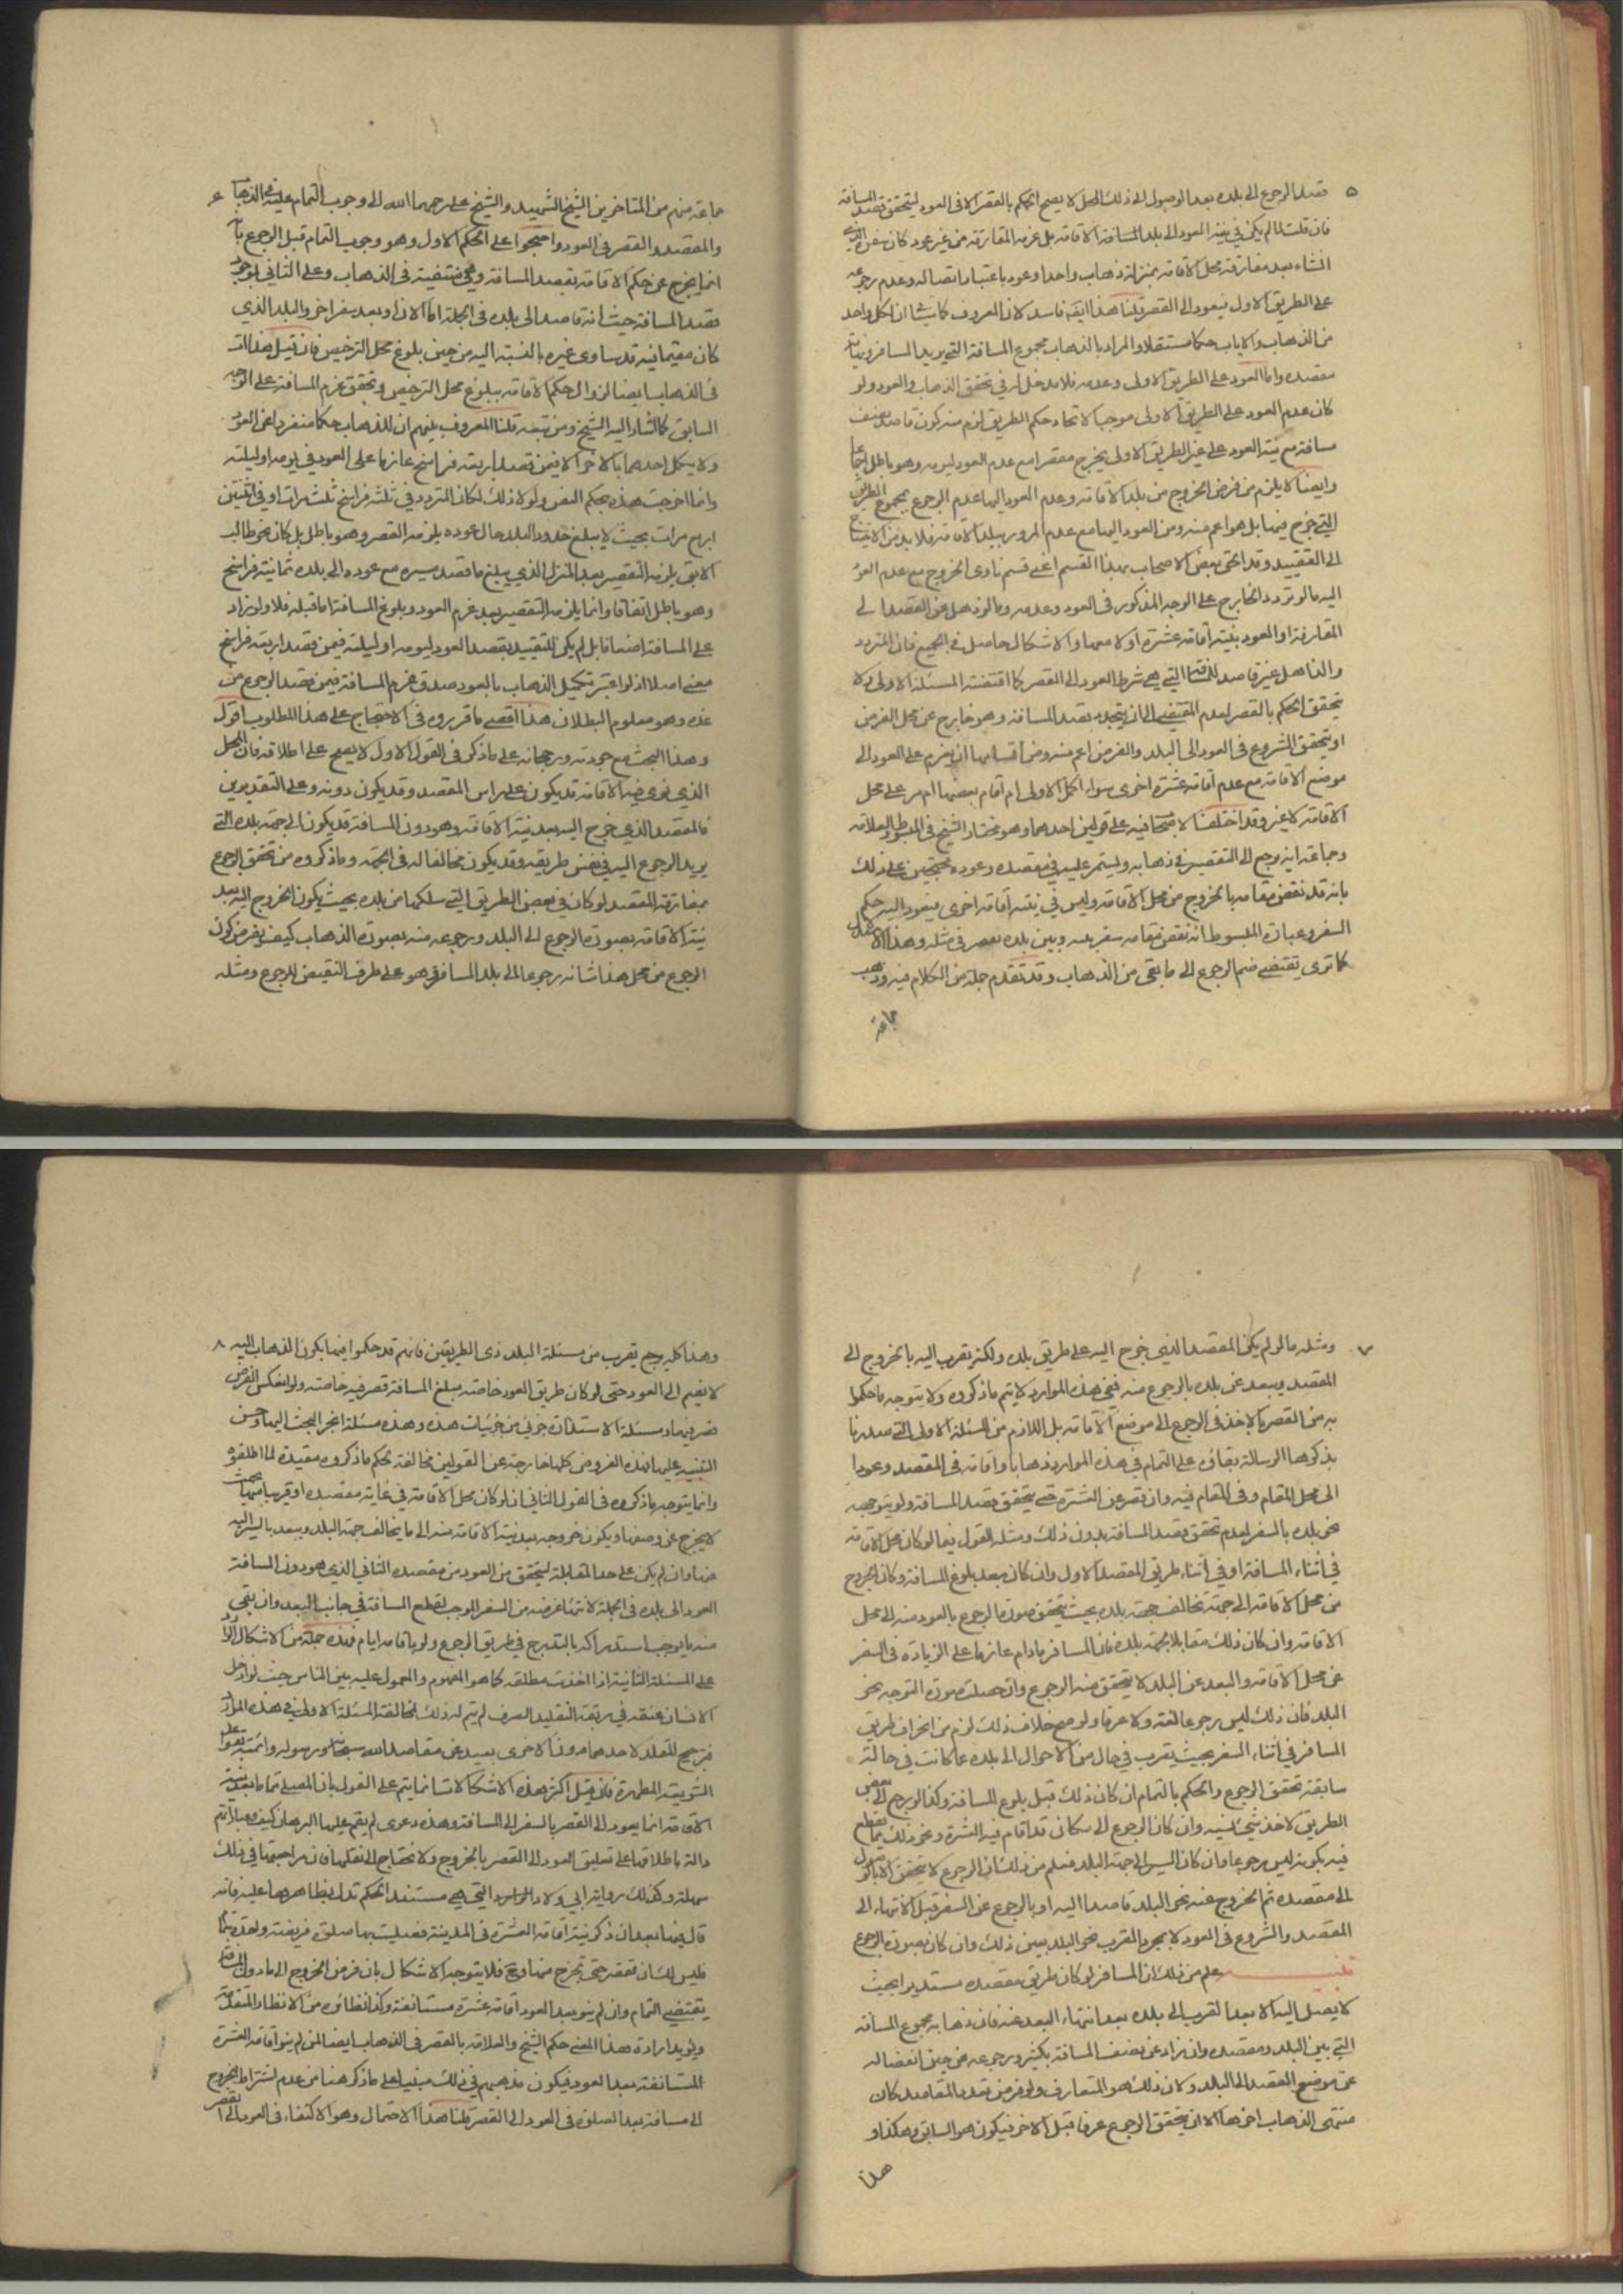 ٥
قصد الرجوع الى بلده بعد الوصول الى ذلك المحل لا يصح الحكم بالقصر الا في العود لتحقق قصد المسافة
فان قلت لما لم يكن في نيته العود الى بلد المسافة الاقامة بل عزمه المفارقة من غير عود كان سفره الذي
انشاء بعد مفارقة محل الاقامة بمنزلة ذهاب واحد او عود باعتبار اتصاله وعدم رجوعه
على الطريق الاول فيعود الى القصر قلنا هذا ايضا فاسد لان المعروف ان لكل واحد
من الذهاب والاياب حكما مستقلا والمراد بالذهاب مجموع المسافة التي يريد المسافر
مقصده واما العود على الطريق الاولى وعدمه فلا مدخل له في تحقق الذهاب والعود ولو
كان عدم العود على الطريق الاولى موجبا لاتحاد حكم الطريق لزم منه كون قاصد نصف
مسافة مع نية العود على غير الطريق الاولى يخرج مقصرا مع عدم العود ليومه وهو باطل اجماعا
وايضا لا يلزم من فرض الخروج من بلد الاقامة وعدم العود اليها عدم الرجوع بمجموع الطريق
التي خرج فيها بل هو اعم منه ومن العود اليها مع عدم المرور ببلد الاقامة فلا بد من الاحتياج
الى التقييد وقد الحق بعض الاصحاب بهذا القسم اعني قسم ناوي الخروج مع عدم العود
اليه ما لو تردد الخارج على الوجه المذكور في العود وعدمه وما لو ذهل عن القصد الى
المفارقة او العود بنية اقامة عشرة اولا معها والاشكال حاصل في الجميع فان المتردد
والذاهل غير قاصد للمسافة التي هي شرط العود الى القصر كما اقتضته المسئلة الاولى فلا
يتحقق الحكم بالقصر لعدم المقتضي الى ان يتجدد قصد المسافة وهو خارج عن محل الفرض
او يتحقق الشروع في العود الى البلد والفرض اعم منه ومن اقسامها ان يعزم على العود الى
موضع الاقامة مع عدم اقامة عشرة اخرى سواء اكمل الاولى ام اقام بعضها ام مر على محل
الاقامة لا غير وقد اختلف الاصحاب فيه على قولين احدهما وهو مختار الشيخ في المبسوط والعلامة
وجماعة انه يرجع الى التقصير في ذهابه ويستمر عليه في مقصده وعوده محتجين على ذلك
بانه قد نقض مقامه بالخروج من محل الاقامة وليس في نيته اقامة اخرى فيعود اليه حكم
السفر وعبارة المبسوط انه نقض مقامه سفر بينه وبين بلده يقصر في مثله وهذا
كما ترى يقتضي ضم الرجوع الى ما بقي من الذهاب وقد تقدم جملة من الكلام فيه وذهب
جماعة
٦
جماعة منهم من المتاخرين الشيخ الشهيد والشيخ علي رحمهما الله الى وجوب التمام عليه في الذهاب
والمقصد والقصر في العود واحتجوا على الحكم الاول وهو وجوب التمام قبل الرجوع بانه
انما يخرج عن حكم الاقامة بقصد المسافة وهي منتفية في الذهاب وعلى الثاني بوجود
قصد المسافة حيث انه قاصد الى بلده في الجملة اما الان او بعد سفر اخر والبلد الذي
كان مقيما فيه قد ساوى غيره بالنسبة اليه من حين بلوغ محل الترخص فان قيل هذا
في الذهاب ايضا لزوال حكم الاقامة ببلوغ محل الترخص وتحقق عزم المسافة على الوجه
السابق كما اشار اليه الشيخ ومن تبعه قلنا المعروف بينهم ان للذهاب حكما منفردا عن العود
ولا يكمل احدهما بالاخر الا فيمن قصد اربعة فراسخ عازما على العود في يومه او ليلته
وانما اخرجت هذه بحكم النص ولولا ذلك لكان المتردد في ثلثة فراسخ ثلث مرات او في اثنتين
اربع مرات بحيث لا يبلغ حدود البلد حال عوده يلزمه القصر وهو باطل بل كان نحو طالب
الابق يلزمه التقصير بعد المنزل الذي يبلغ ما قصد مسيره مع عوده الى بلده ثمانية فراسخ
وهو باطل اتفاقا وانما يلزمه التقصير بعد عزم العود وبلوغ المسافة اما قبله فلا ولو زاد
على المسافة اضعافا بل لم يكن للتقييد بقصد العود ليومه او ليلته فيمن قصد اربعة فراسخ
معنى اصلا اذ لو اعتبر تكميل الذهاب بالعود صدق عزم المسافة فيمن قصد الرجوع من
غده وهو معلوم البطلان هذا اقصى ما قرروه في الاحتجاج على هذا المطلوب اقول
وهذا البحث مع جودته ورجحانه على ما ذكر في القول الاول لا يصح على اطلاقه فان المحل
الذي نوى فيه الاقامة قد يكون على راس المقصد وقد يكون دونه وعلى التقديرين
فالمقصد الذي خرج اليه بعد نية الاقامة وهو دون المسافة قد يكون الى جهة بلده التي
يريد الرجوع اليه في نفس طريقه وقد يكون مخالفا له في الجهة وما ذكروه من تحقق الرجوع
بمفارقة المقصد لو كان في بعض الطريق التي سلكها من بلده بحيث يكون الخروج اليه بعد
نية الاقامة بصورة الرجوع الى البلد ورجوعه منه بصورة الذهاب كيف يفرض كون
الرجوع من محل هذا شانه رجوعا الى بلد المسافر وهو على طرف النقيض للرجوع ومثله
٧
ومثله ما لو لم يكن المقصد الذي خرج اليه على طريق بلده ولكنه يقرب اليه بالخروج الى
المقصد ويبعد عن بلده بالرجوع منه ففي هذه الموارد لا يتم ما ذكروه ولا يتوجه ما حكموا
به من القصر بالاخذ في الرجوع الى موضع الاقامة بل اللازم من المسئلة الاولى التي صدرنا
بذكرها الرسالة بقاؤه على التمام في هذه الموارد ذهابا واقامة في المقصد وعودا
الى محل المقام وفي المقام فيه وان قصر عن العشرة حتى يتحقق قصد المسافة ولو بتوجهه
نحو بلده بالسفر لعدم تحقق قصد المسافة بدون ذلك ومثله القول فيما لو كان محل الاقامة
في اثناء المسافة او في اثناء طريق المقصد الاول وان كان بعد بلوغ المسافة وكان الخروج
من محل الاقامة الى جهة تخالف جهة بلده بحيث يتحقق صورة الرجوع بالعود منه الى محل
الاقامة وان كان ذلك مقابلا لجهة بلده فان المسافر ما دام عازما على الزيادة في السفر
عن محل الاقامة والبعد عن البلد لا يتحقق منه الرجوع وان حصلت صورة التوجه نحو
البلد فان ذلك ليس رجوعا لغة ولا عرفا ولو صح خلاف ذلك لزم من انحراف طريق
المسافر في اثناء السفر بحيث يقرب في حال من الاحوال الى بلده عما كانت في حالة
سابقة تحقق الرجوع والحكم بالتمام ان كان ذلك قبل بلوغ المسافة وكذا لو رجع الى بعض
الطريق لاخذ شيء نسيه وان كان الرجوع الى مكان قد اقام فيه العشرة ونحو ذلك مما يقطع
فيه بكونه ليس رجوعا وان كان السير الى جهة البلد فعلم من ذلك ان الرجوع لا يتحقق الا بالوصول
الى مقصده ثم الخروج عنه نحو البلد قاصدا اليه او بالرجوع عن السفر قبل الانتهاء الى
المقصد والشروع في العود لا بمجرد القرب نحو البلد بعين ذلك وان كان بصورة الرجوع
تنبيه علم من ذلك ان المسافر لو كان طريق مقصده مستديرا بحيث
لا يصل اليه الا بعد القرب الى بلده بعد انتهاء البعد عنه فان ذهابه مجموع المسافة
التي بين البلد ومقصده وان زاد عن نصف المسافة بكثير ورجوعه من حين انفصاله
عن موضع القصد الى البلد ولان ذلك هو المتعارف ولو فرض تعدد المقاصد كان
منتهى الذهاب اخرها الا ان يتحقق الرجوع عرفا قبل الاخر فيكون هو السابق وهكذا و
هذا
٨
وهذا كله يرجع يقرب من مسئلة البلد ذي الطريقين فانهم قد حكموا فيها بكون الذهاب اليه
لا يضم الى العود حتى لو كان طريق العود خاصة مبلغ المسافة قصر فيه خاصة ولو انعكس الفرض
قصر فيهما ومسئلة الاستدارة جزئي من جزئيات هذه وهذه مسئلة انجر البحث اليها وحسن
التنبيه عليها فهذه الفروض كلها خارجة عن القولين مخالفة لحكم ما ذكروه مقيدة لما اطلقوه
وانما يتوجه ما ذكروه في القول الثاني ان لو كان محل الاقامة في غاية مقصده او قريبا منها بحيث
لا يخرج عن وصفها ويكون خروجه بعد نية الاقامة منه الى ما يخالف جهة البلد ويبعد بالسير اليه
عنها وان لم يكن على حد المقابلة ليتحقق من العود من مقصده الثاني الذي هو دون المسافة
العود الى بلده في الجملة لانتهاء غرضه من السفر الموجب لقطع المسافة في جانب البعد وان بقي
منه ما يوجب استدراكه بالتعريج في طريق الرجوع ولو باقامة ايام فهذه جملة من الاشكال الوارد
على المسئلة الثانية اذا اخذت مطلقة كما هو المفهوم والمعمول عليه بين الناس حيث لو ادخل
الانسان عنقه في ربقة التقليد الصرف لم يتم له ذلك لمخالفة المسئلة الاولى في هذه الموارد
فترجيح المقلد لاحدهما دون الاخرى بعيد عن مقاصد الله سبحانه ورسوله وائمته
الشريعة المطهرة فان قيل اكثر هذه الاشكالات انما يتم على القول بان المصلي تماما بعد نية
الاقامة انما يعود الى القصر بالسفر الى المسافة وهذه دعوى لم يقم عليها البرهان كيف وعباراتهم
دالة باطلاقها على تعليق العود الى القصر بالخروج ولا نحتاج الى نقلها فان مراجعتها في ذلك
سهلة وكذلك رواية ابي ولاد التي هي مستند الحكم تدل بظاهرها عليه فانه
قال فيها بعد ان ذكر نية اقامة العشرة في المدينة فصليت بها صلوة فريضة واحدة بتمام
فليس لك ان تقصر حتى تخرج منها وح فلا يتوجه الاشكال بان فرض الخروج الى ما دون المسافة
يقتضي التمام وان لم ينو بعد العود اقامة عشرة مستانفة وكذا نظائره من الانظار المتقدمة
ويؤيد ارادة هذا المعنى حكم الشيخ والعلامة بالقصر في الذهاب ايضا لمن لم ينو اقامة العشرة
المستانفة بعد العود فيكون مذهبهم في ذلك مبنيا على ما ذكر هنا من عدم اشتراط الخروج
الى مسافة بعد الصلوة في العود الى القصر قلنا هذا الاحتمال وهو الاكتفاء في العود الى القصر